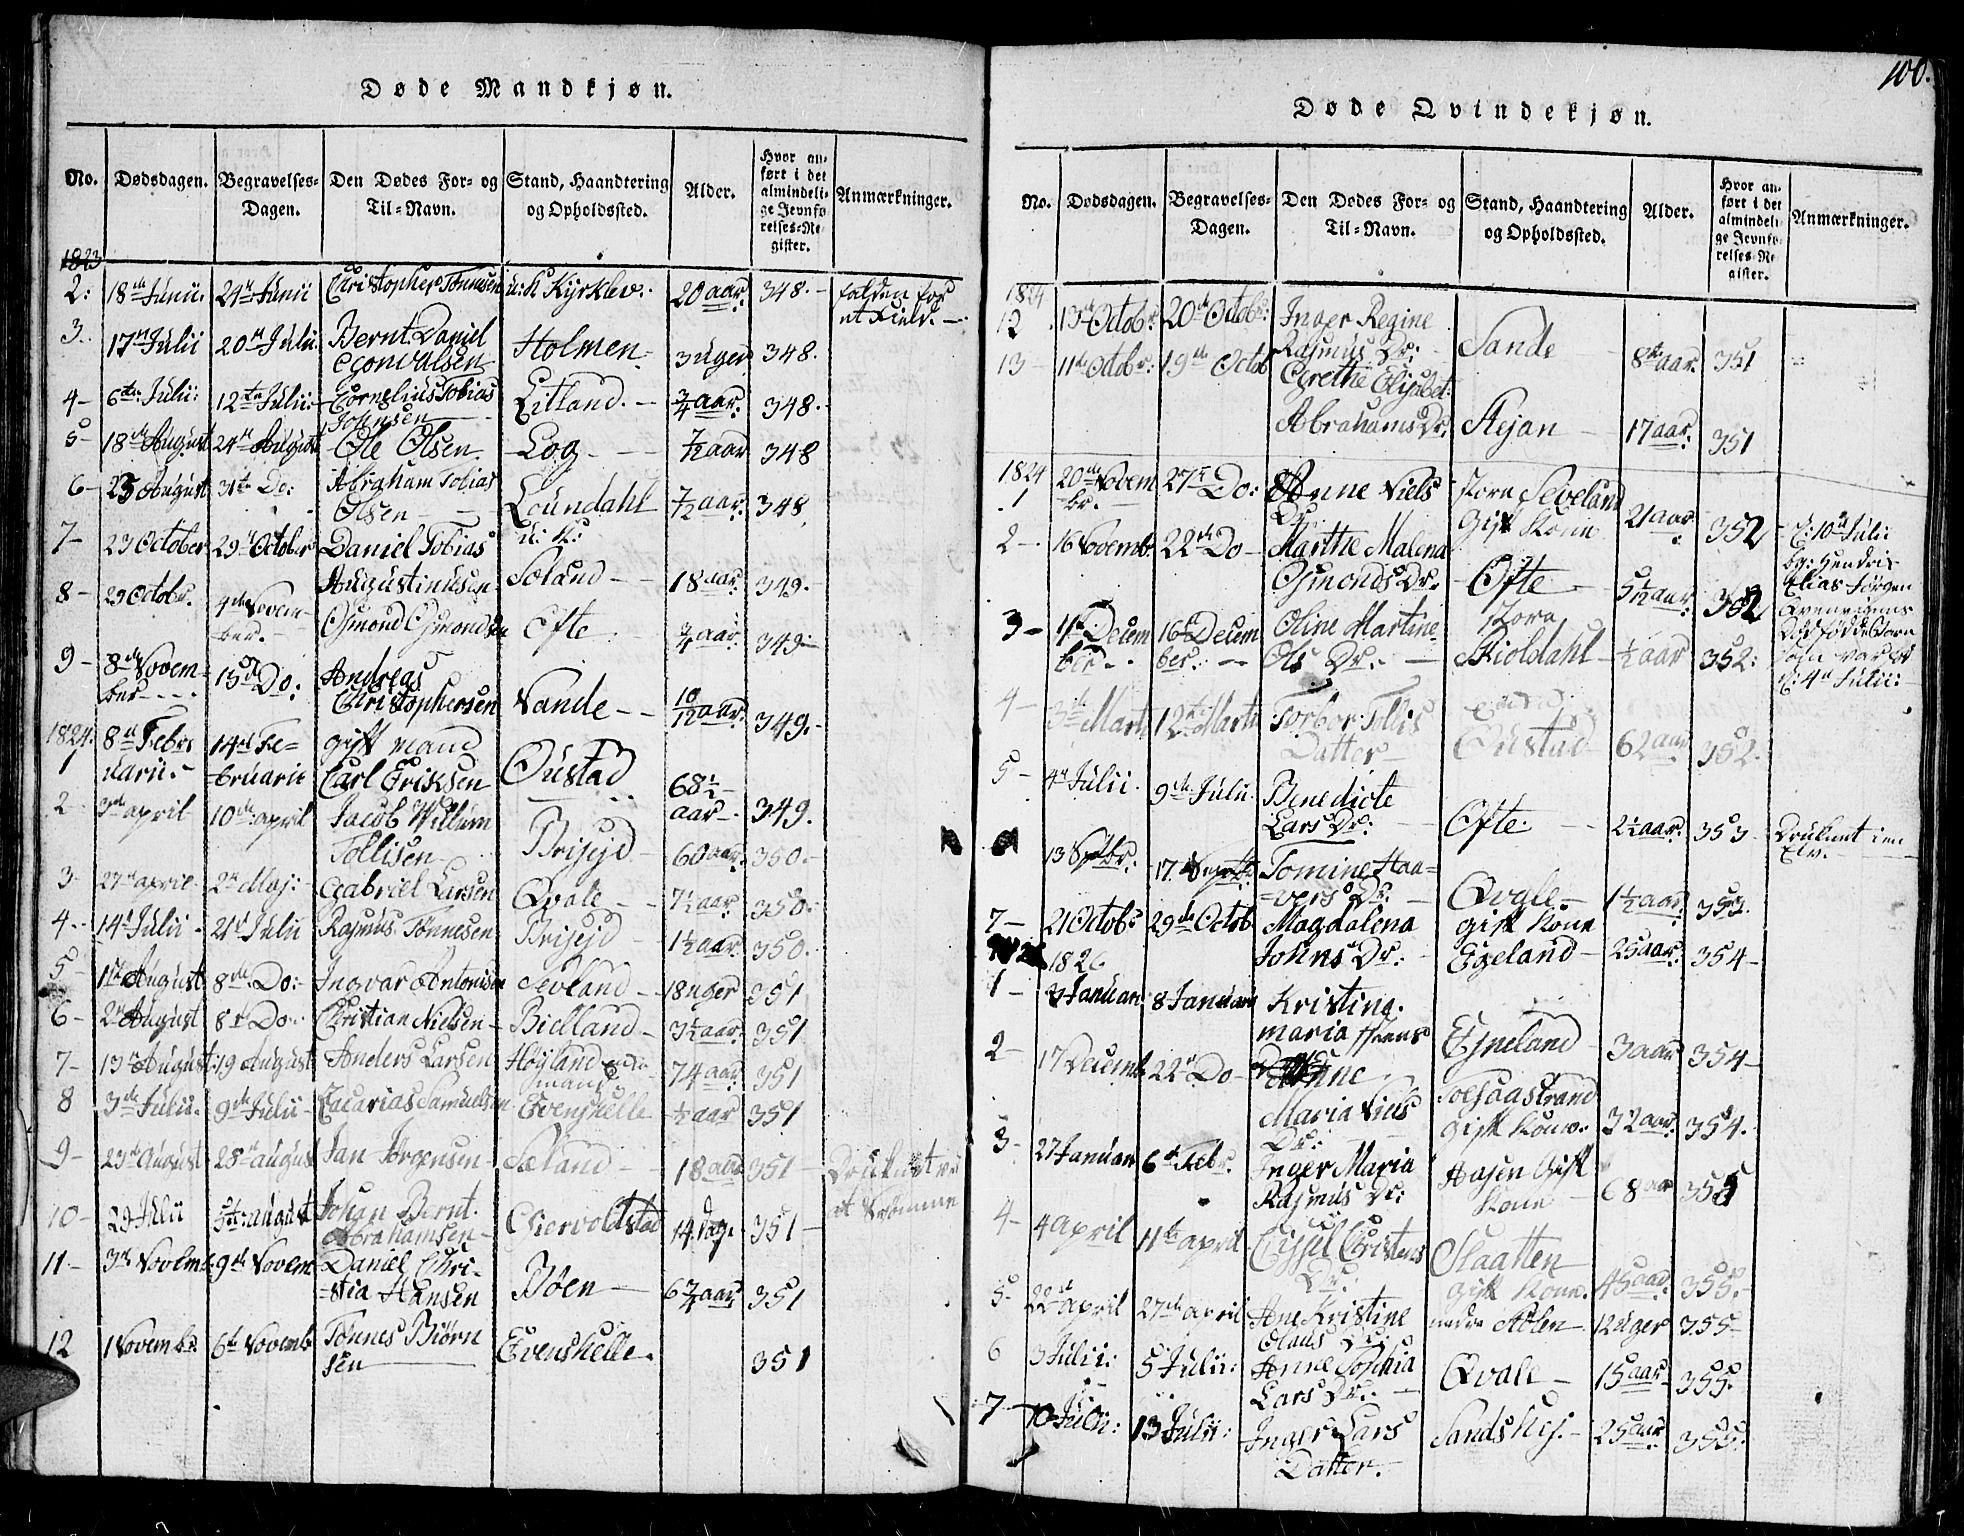 Døde Mandkjøn.
No. Dødsdagen. Begravelses-Dagen. Den Dødes For- og Til-Navn. Stand, Haandtering og Opholdssted. Alder. Hvor anført i det almindelige Jevnførelses-Register. Anmærkninger.
1823
2: 18de Junii. 24de Junii Christopher Tønnesen Kyrklev. 20 aar. 348. falden for
3. 17de Julii 20de Julii Bernt Daniel Holmen 3 uger 348.
4- 6te Julii: 12te Julii: Cornelius Tobias Johnsen Eitland. 3/4 aar. 348.
5- 18de August 24de August Ole Olsen. Log 7/12 aar 348
6- 25 August 31te Do: Abraham Tobias Olsen Loundahl 7/12 aar. 348
7- 23 October 29de October Daniel Tobias Augustinusen Søland 18 aar. 349.
8- 29 Octobr. 4de November. Osmond Osmondsen Efte 3/4 aar. 349
9- 8de November 15de Do: Andreas Christophersen Vande 10/12 aar. 349.
1824.
1 8de Februarii. 14de Februarii gift mand Carl Eriksen Oustad 68 1/2 aar. 349.
2 3de april 10de april Jacob Willum Tollisen Briseid 60 aar. 350.
3 27de april 2de Maj: Gabriel Larsen Qvale 7 1/2 aar. 350.
4. 14de Julii 21de Julii Rasmus Tønnesen Briseid 1 1/2 aar. 350.
5- 1ste August 8de Do: Ingvar Antonisen Sevland 18 uger 351
6- 2de August 8de Do: Christian Nielsen Bielland 3 1/2 aar. 351
7- 13de August 19 August Anders Larsen Høyland 74 aar. 351
8 3de Julii. 9de Julii Zacarias Samuelsen Evenshelle 1/2 aar 351
9- 23de August 28de august Jan Jørgensen Søland 18 aar 351 Druknet at Svømme
10- 29 Julii 5te august Johan Bernt Abrahamsen Giervoldstad 14 dage 351
11- 3de Novembr. 9de Novem Daniel Christia Hansen Böen 6 3/4 aar 351
12 1 Novembr. 6te Novembr Tønnes Biørnsen Evenshelle. 351
100.
Døde Qvindekjøn.
No. Dødsdagen. Begravelses-Dagen. Den Dødes For- og Til-Navn. Stand, Haandtering og Opholdssted. Alder. Hvor anført i det almindelige Jevnførelses-Register. Anmærkninger.
1824
12 13de Octobr. 20de Octobr: Inger Regine Rasmus Dr: Sande 8te aar. 351
13 11te Octobr: 19de Octobr Grethe Elisabet Abrahams Dr. Stejan 17 aar. 351
1824
1 20de Novembr. 27de Do: Anne Niels Dr: Store Seveland Gift Kone 21 aar. 352
2- 16 Novemb. 22de Do Marthe Malena Osmonds Dr: Efte 5/12 aar. 352
3- 11te December 16de December. Oline Martine Ols Dr. Store Skioldahl 1/2 aar 352:
E: 10de Julii
Hendrik
Elias Jørgen
Dødføddebarn
som var
4de Julii:
4- 3de Marti 12te Marti Torbor Tollis Datter Oustad 62 aar 352.
5- 4de Julii. 9de Julii. Benedicte Lars Dr: Efte 2 1/2 aar. 353 Druknet i en Elv.
13 Septbr. 17. Septbr. Tomine Haavers Dr. Qvale 1 1/2 aar. 353.
7- 21 Octobr 29de Octob Magdalena Johns Dr: gift kone Egeland 25 aar. 354
1826
1- 3 Januari 8 Januari Kristina maria Egneland 3 aar 354
2- 17 Decemb. 22de Do Anne Maria Niels Dr: gift kone. 32 aar. 354.
3- 27 Januari 6te Febr. Inger Maria Rasmus Dr: Aasen Gift Kone 68 aar 355
4- 4 april 11te april Cissel Christens Dr. Slaatten gift Kone. 45 aar. 355.
5- 22de april 27de april Ane Kristine Olaus Dr: nedre 12 uger 355
6 3 Julii: 5 Julii: Anne Sophia Lars Dr. Qvale 15 aar 355.
7- 10 Julii: 13 Julii: Inger Lars Datter. 25 aar 355.